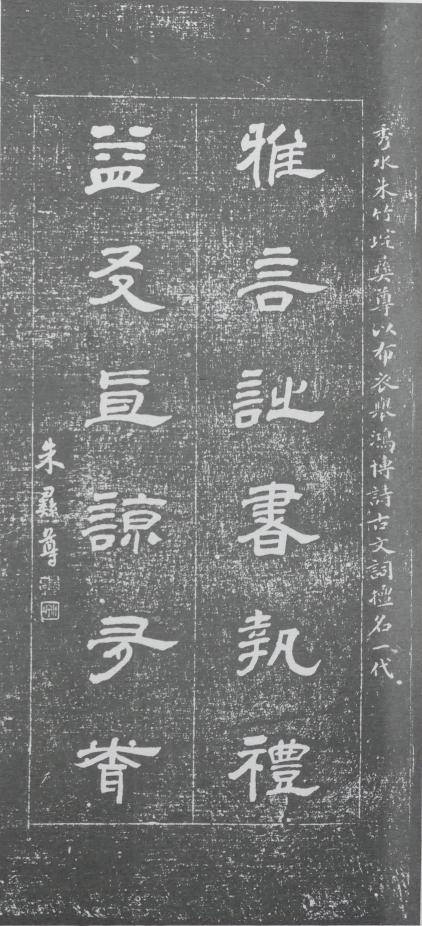 秀水朱竹垞彝尊以布衣舉鴻博詩古文詞擅名一代
雅言詩書執禮
益友直諒多聞
朱彝尊